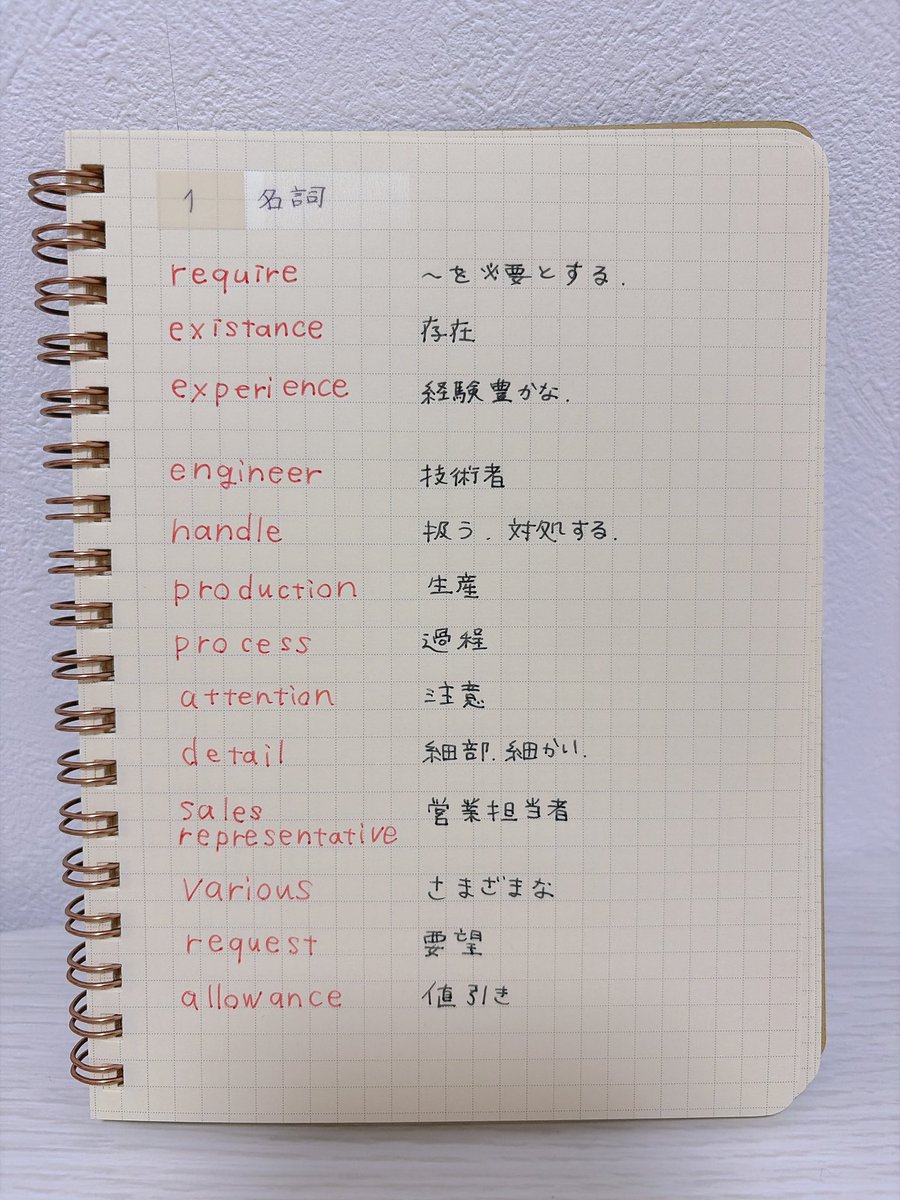 1 名詞
require ～を必要とする.
existance 存在
experience 経験豊かな.
engineer 技術者
handle 扱う. 対処する.
production 生産
process 過程
attention 注意
detail 細部. 細かい.
sales
representative 営業担当者
various さまざまな
request 要望
allowance 値引き